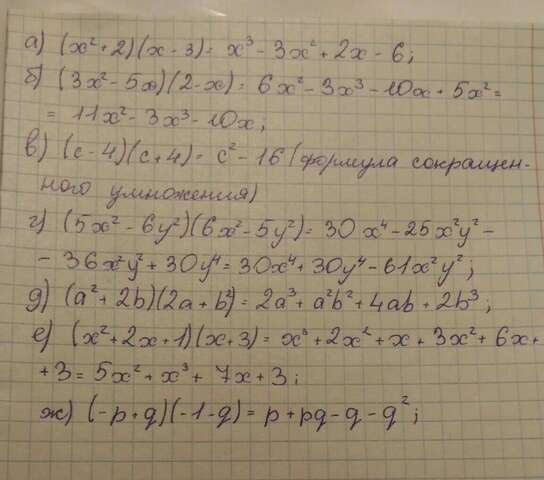 а) (x²+2)(x-3)= x³-3x²+2x-6;
б) (3x²-5x)(2-x)= 6x²-3x³-10x+5x²=
= 11x²-3x³-10x;
в) (c-4)(c+4)= c²-16 (формула сокращен-
ного умножения)
г) (5x²-6y²)(6x²-5y²)= 30x⁴-25x²y²-
- 36x²y²+30y⁴= 30x⁴+30y⁴-61x²y²;
д) (a²+2b)(2a+b²)= 2a³+a²b²+4ab+2b³;
е) (x²+2x+1)(x+3)= x³+2x²+x+3x²+6x+
+3= 5x²+x³+7x+3;
ж) (-p+q)(-1-q)= p+pq-q-q²;